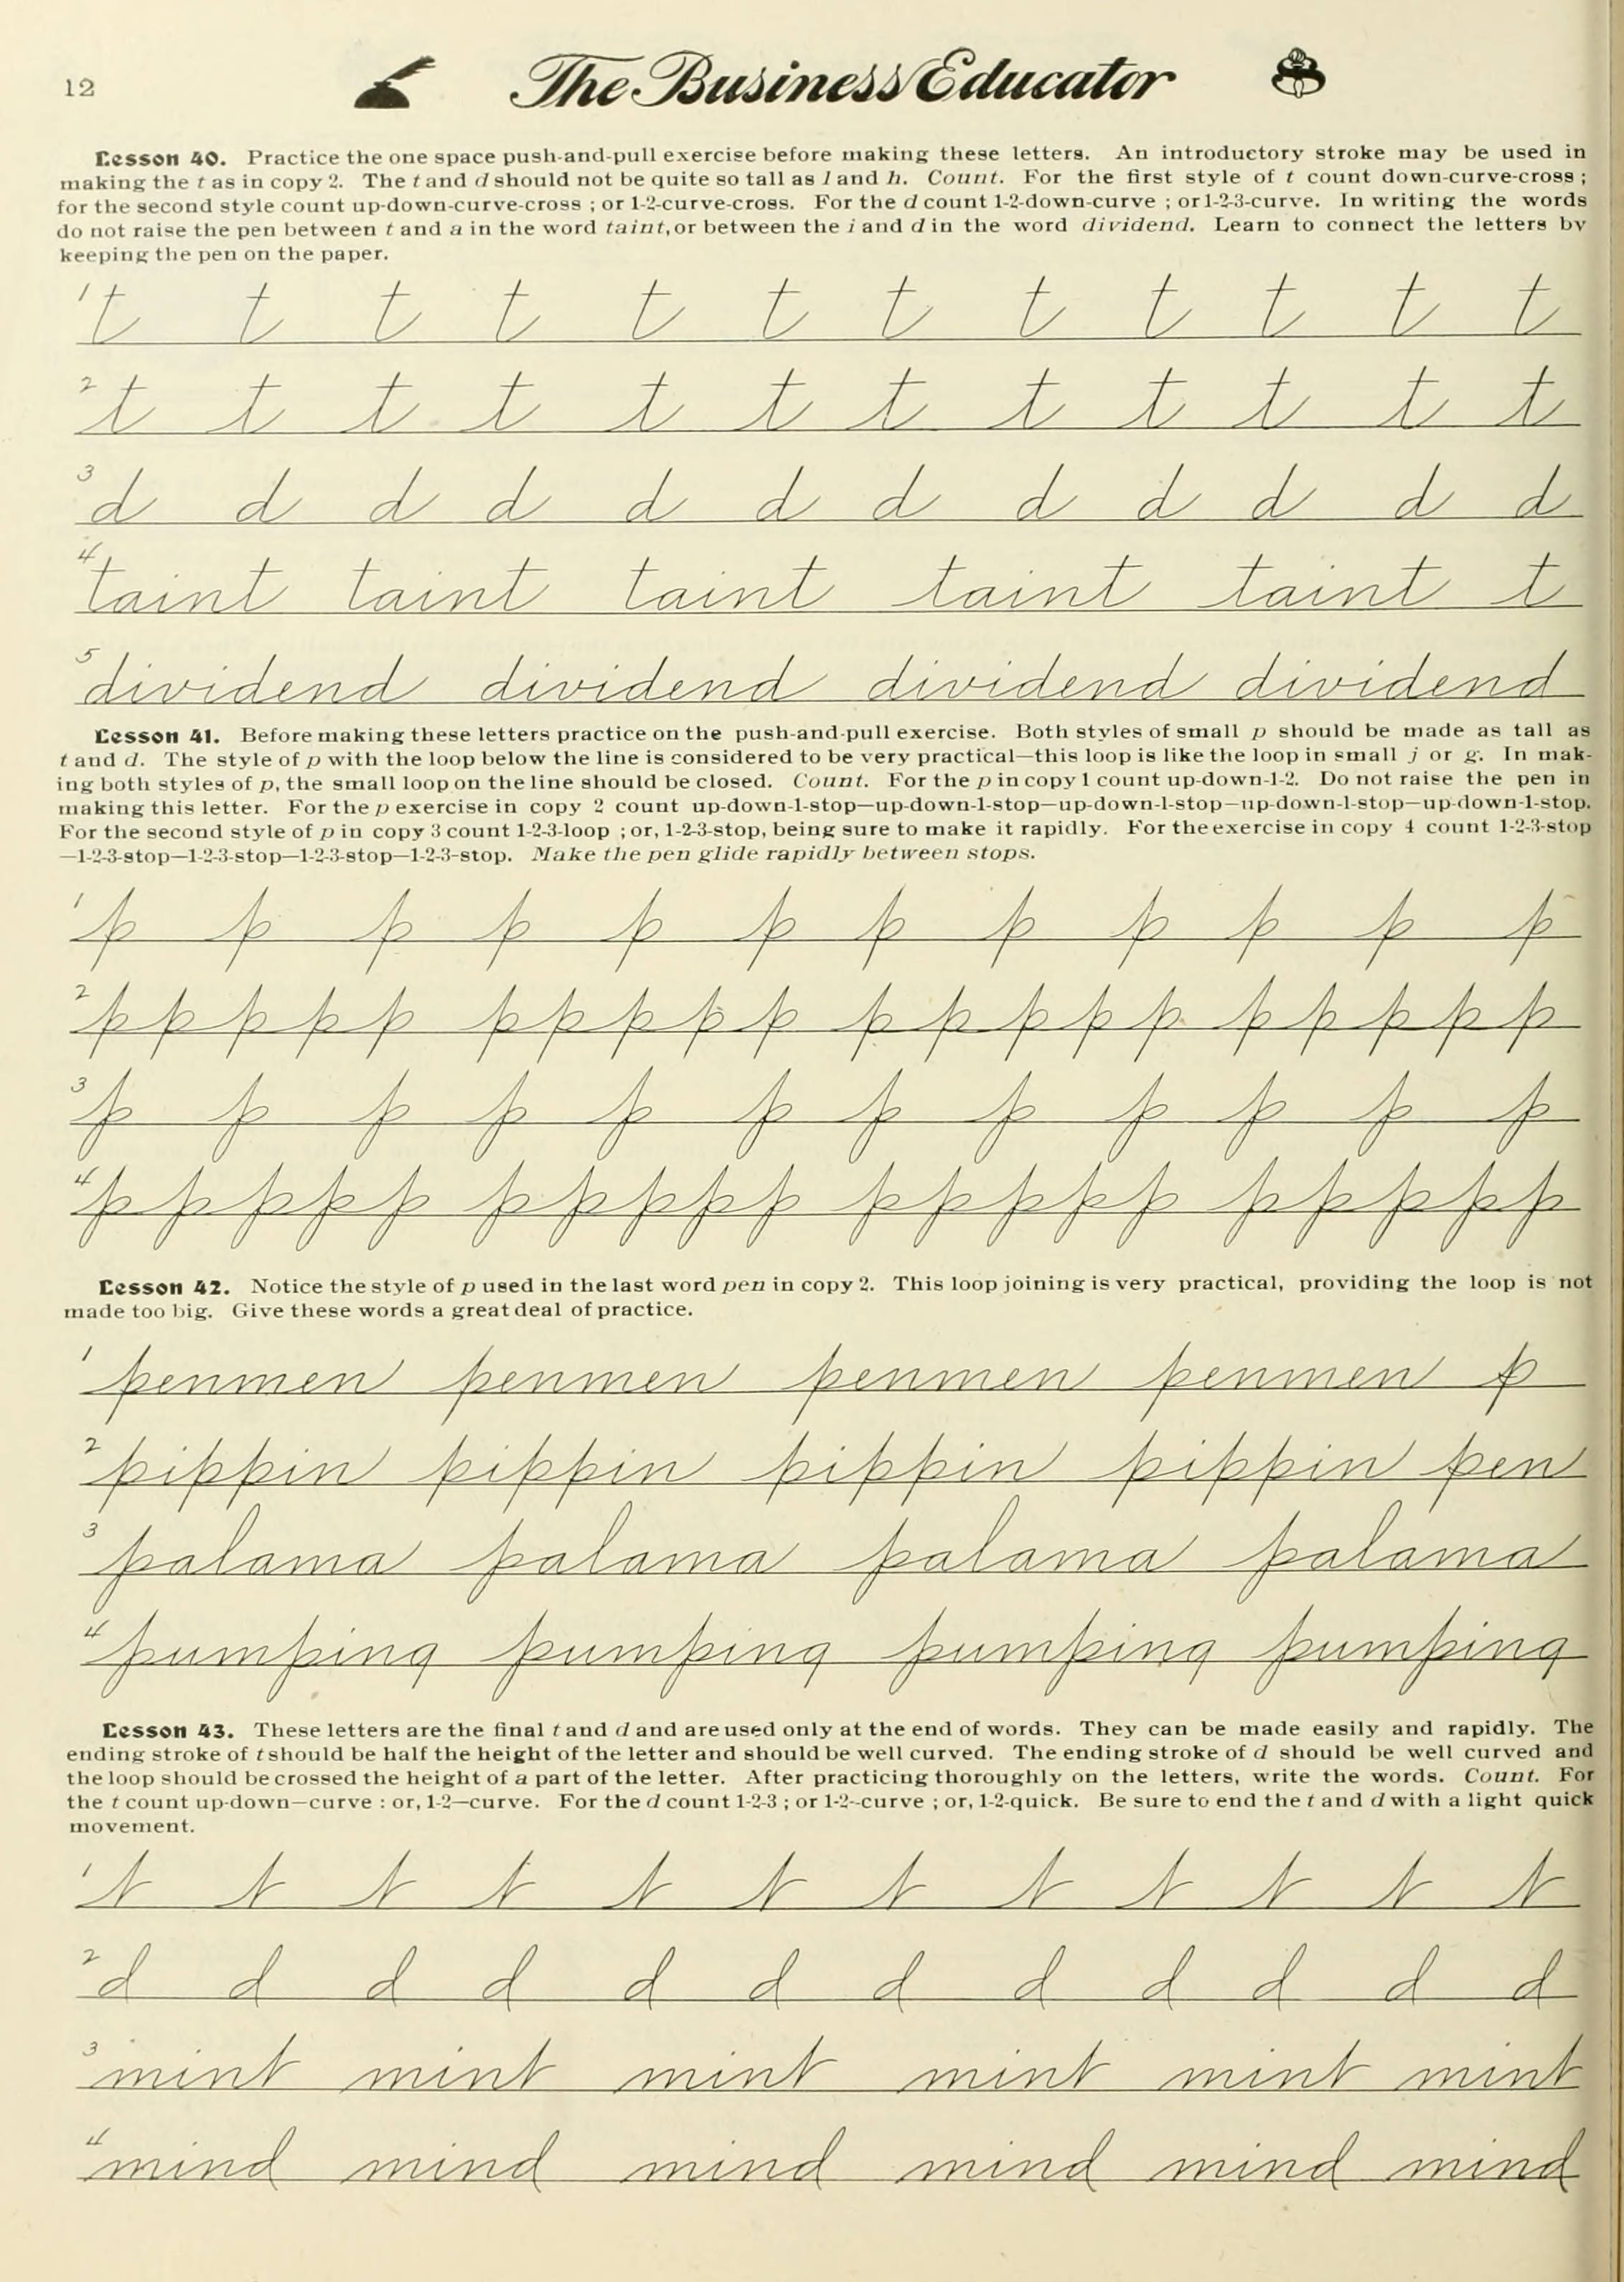 12
The Business Educator
Lesson 40. Practice the one space push-and-pull exercise before making these letters. An introductory stroke may be used in
making the t as in copy 2. The t and d should not be quite so tall as l and h. Count. For the first style of t count down-curve-cross ;
for the second style count up-down-curve-cross ; or 1-2-curve-cross. For the d count 1-2-down-curve ; or 1-2-3-curve. In writing the words
do not raise the pen between t and a in the word taint, or between the i and d in the word dividend. Learn to connect the letters by
keeping the pen on the paper.
1 t t t t t t t t t t t t
2 t t t t t t t t t t t t
3 d d d d d d d d d d d d
4 taint taint taint taint taint t
5 dividend dividend dividend dividend
Lesson 41. Before making these letters practice on the push-and-pull exercise. Both styles of small p should be made as tall as
t and d. The style of p with the loop below the line is considered to be very practical—this loop is like the loop in small j or g. In mak-
ing both styles of p, the small loop on the line should be closed. Count. For the p in copy 1 count up-down-1-2. Do not raise the pen in
making this letter. For the p exercise in copy 2 count up-down-1-stop—up-down-1-stop—up-down-1-stop—up-down-1-stop—up-down-1-stop.
For the second style of p in copy 3 count 1-2-3-loop ; or, 1-2-3-stop, being sure to make it rapidly. For the exercise in copy 4 count 1-2-3-stop
—1-2-3-stop—1-2-3-stop—1-2-3-stop—1-2-3-stop. Make the pen glide rapidly between stops.
1 p p p p p p p p p p p p
2 p p p p p p p p p p p p p p p p p p p p
3 p p p p p p p p p p p p
4 p p p p p p p p p p p p p p p p p p p p
Lesson 42. Notice the style of p used in the last word pen in copy 2. This loop joining is very practical, providing the loop is not
made too big. Give these words a great deal of practice.
1 penmen penmen penmen penmen p
2 pippin pippin pippin pippin pen
3 palama palama palama palama
4 pumping pumping pumping pumping
Lesson 43. These letters are the final t and d and are used only at the end of words. They can be made easily and rapidly. The
ending stroke of t should be half the height of the letter and should be well curved. The ending stroke of d should be well curved and
the loop should be crossed the height of a part of the letter. After practicing thoroughly on the letters, write the words. Count. For
the t count up-down—curve : or, 1-2—curve. For the d count 1-2-3 ; or 1-2--curve ; or, 1-2-quick. Be sure to end the t and d with a light quick
movement.
1 t t t t t t t t t t t t
2 d d d d d d d d d d d d
3 mint mint mint mint mint mint
4 mind mind mind mind mind mind